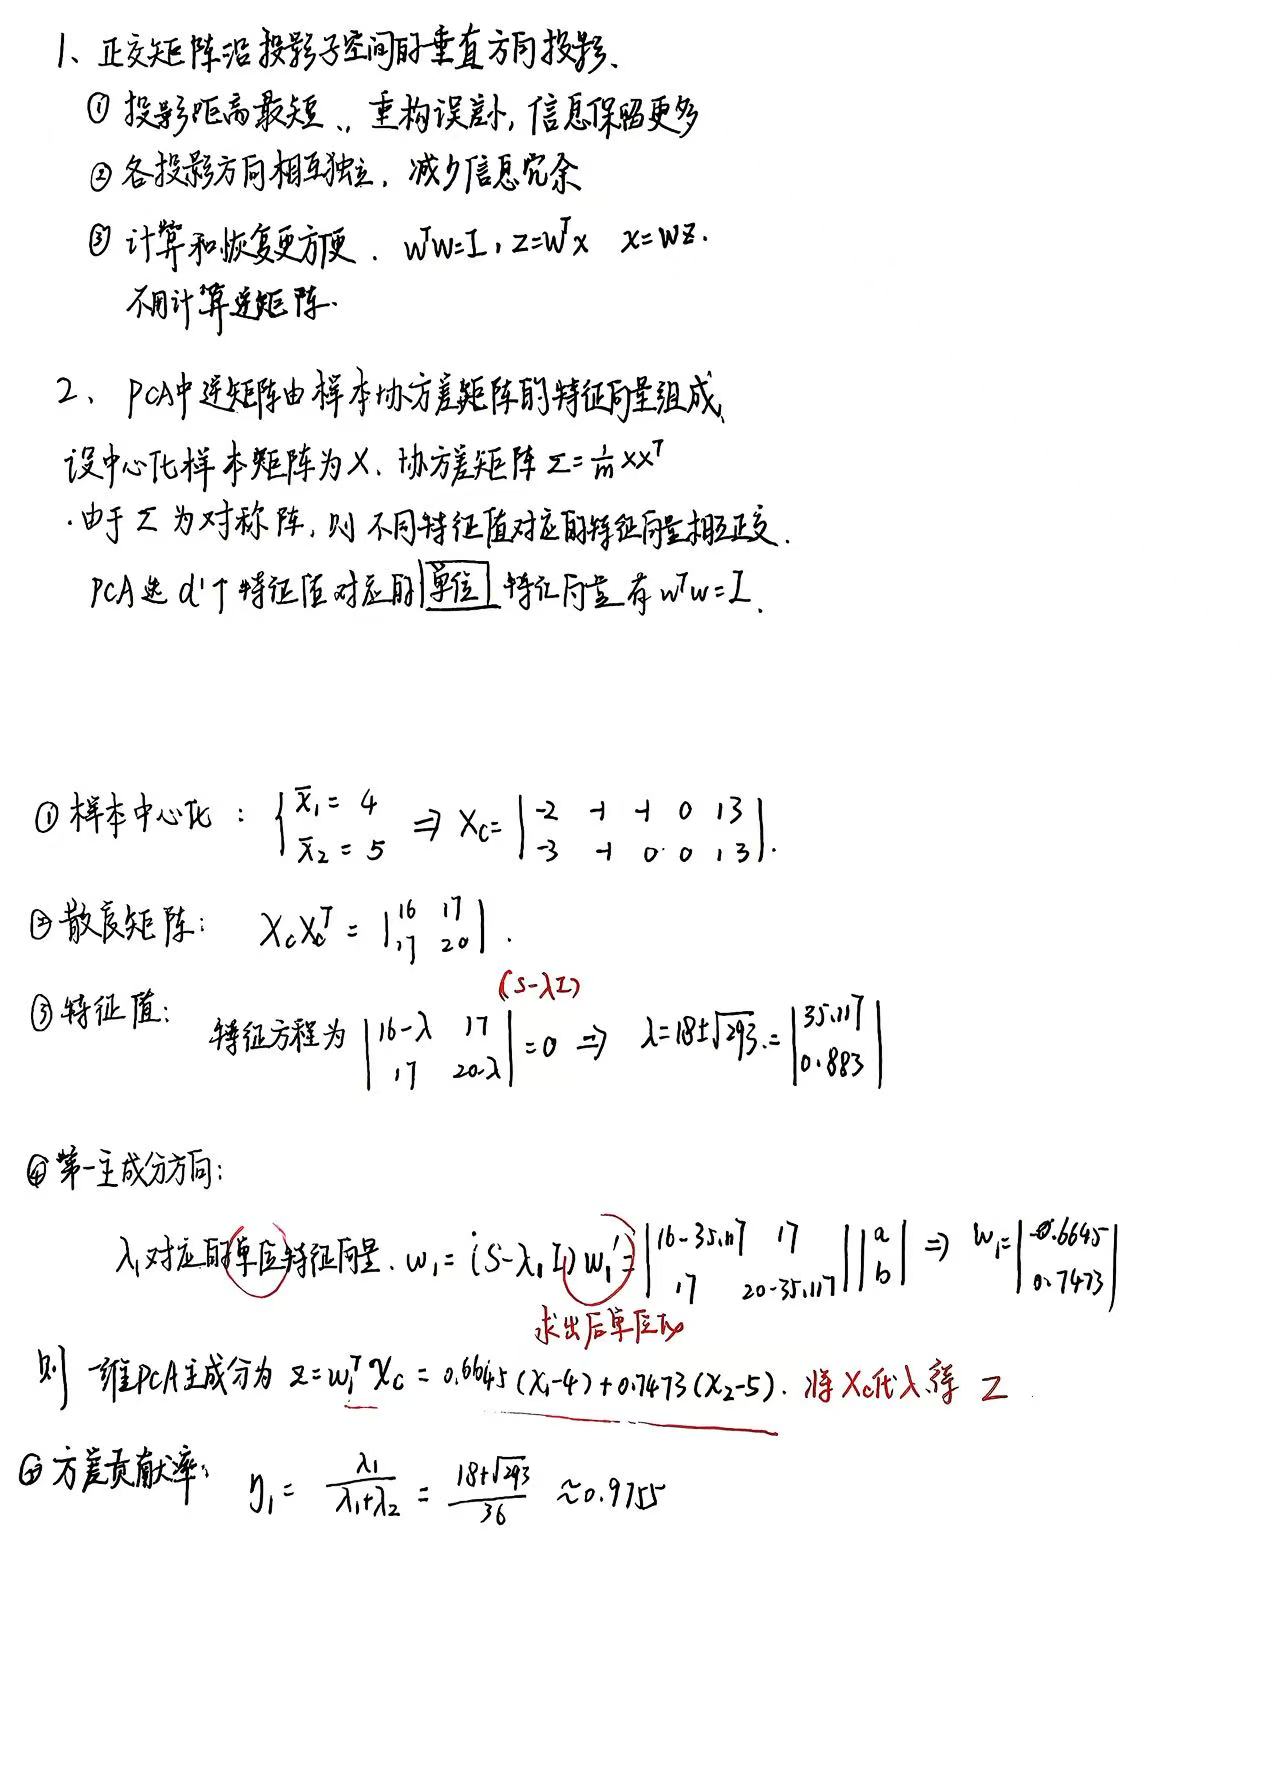 1、正交矩阵沿投影子空间的垂直方向投影、
① 投影距离最短、, 重构误差小, 信息保留更多
② 各投影方向相互独立, 减少信息冗余
③ 计算和恢复更方便. WᵀW=I, Z=Wᵀx x=WZ.
不用计算逆矩阵.
2、PCA中逆矩阵由样本协方差矩阵的特征向量组成、
设中心化样本矩阵为X. 协方差矩阵 Σ=1/m XXᵀ
·由于Σ为对称阵, 则不同特征值对应的特征向量相互正交.
PCA选d'个特征值对应的单位特征向量有WᵀW=I.
① 样本中心化: { x̄₁=4 x̄₂=5 ⇒ Xc= | -2 -1 -1 0 1 3 ; -3 -1 0 0 1 3 |.
② 散度矩阵: XcXcᵀ = | 16 17 ; 17 20 | .
(S-λI)
③ 特征值: 特征方程为 | 16-λ 17 ; 17 20-λ | =0 ⇒ λ=18±√293.= | 35.117 ; 0.883 |
④ 第一主成分方向:
λ₁对应的单位特征向量. w₁= (S-λ₁I)w₁'= | 16-35.117 17 ; 17 20-35.117 | | a ; b | ⇒ w₁= | 0.6645 ; 0.7473 |
求出后单位化
则 一维PCA主成分为 z=w₁ᵀxc = 0.6645(x₁-4)+0.7473(x₂-5). 将Xc代入得 Z
方差贡献率: η₁= λ₁/(λ₁+λ₂) = (18+√293)/36 ≈0.9755